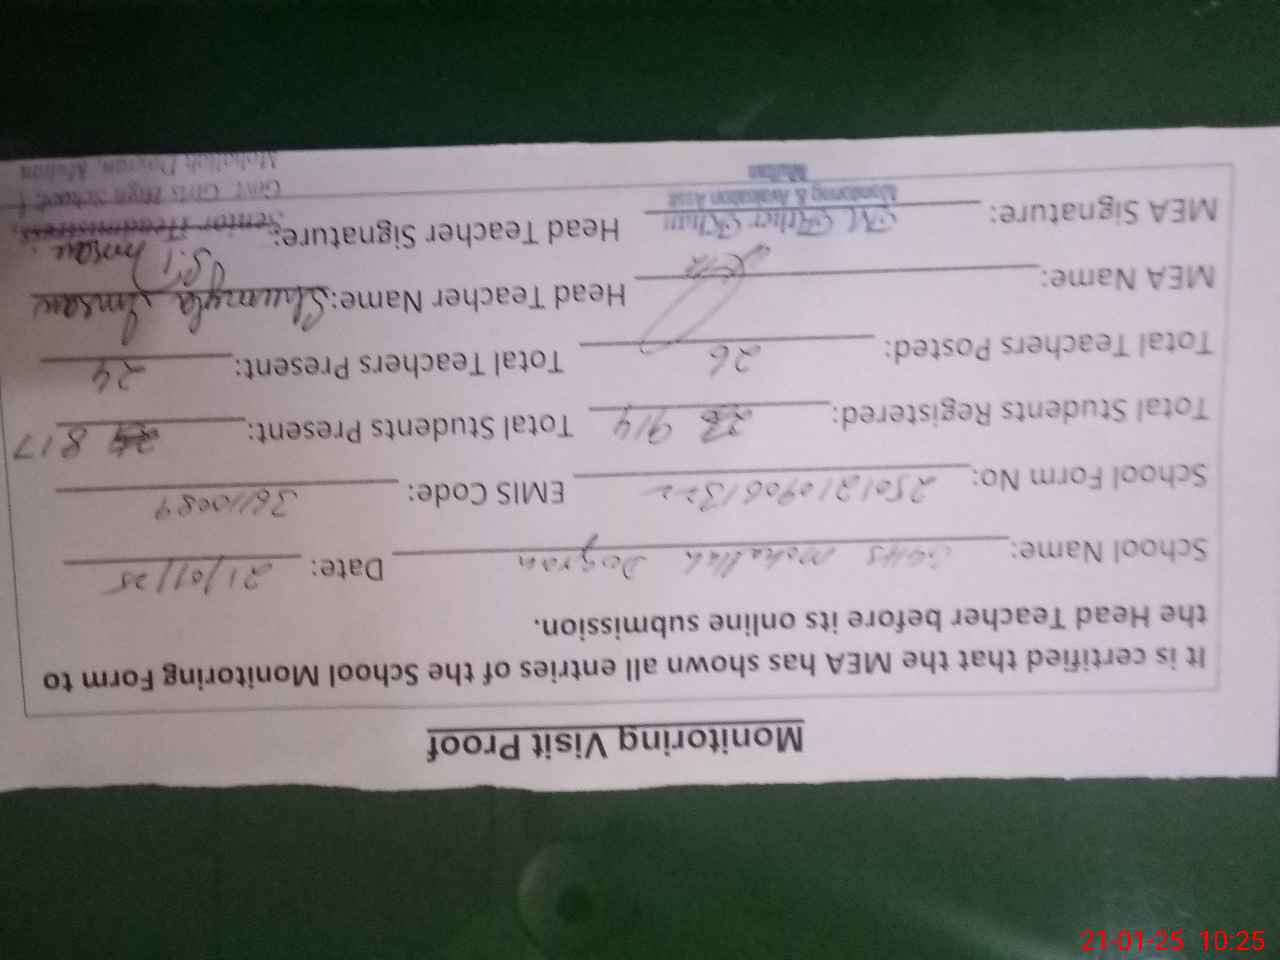 Monitoring Visit Proof
It is certified that the MEA has shown all entries of the School Monitoring Form to
the Head Teacher before its online submission.
School Name: GGHS Mohallah Dogran Date: 21/01/25
School Form No: EMIS Code:
Total Students Registered: 914 Total Students Present: 817
Total Teachers Posted: 26 Total Teachers Present: 24
MEA Name: Head Teacher Name: Shumyla Imran
MEA Signature: Head Teacher Signature:
Monitoring & Evaluation Asstt Senior Headmistress
Multan Govt. Girls High School
Mohallah Dogran, Multan
21-01-25 10:25